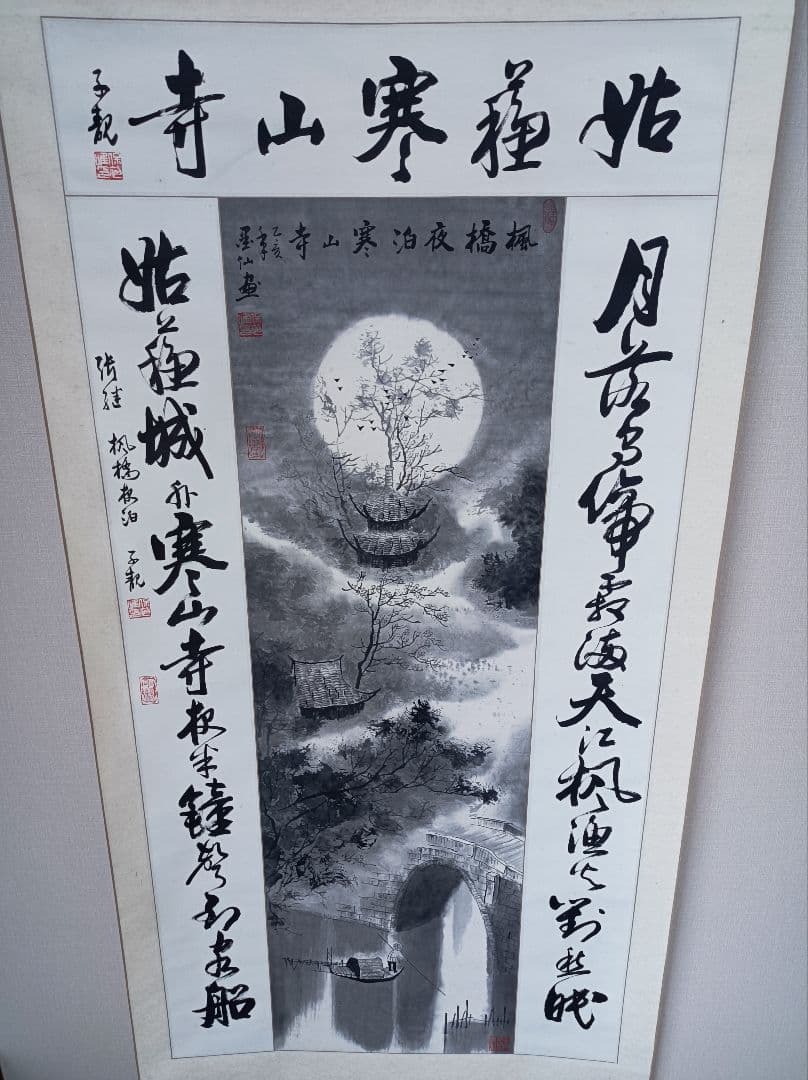 姑蘇寒山寺
子靚
月落烏啼霜滿天江楓渔火對愁眠
楓橋夜泊寒山寺
乙亥年
墨仙画
姑蘇城外寒山寺夜半鐘聲到客船
张继 枫橋夜泊 子靚